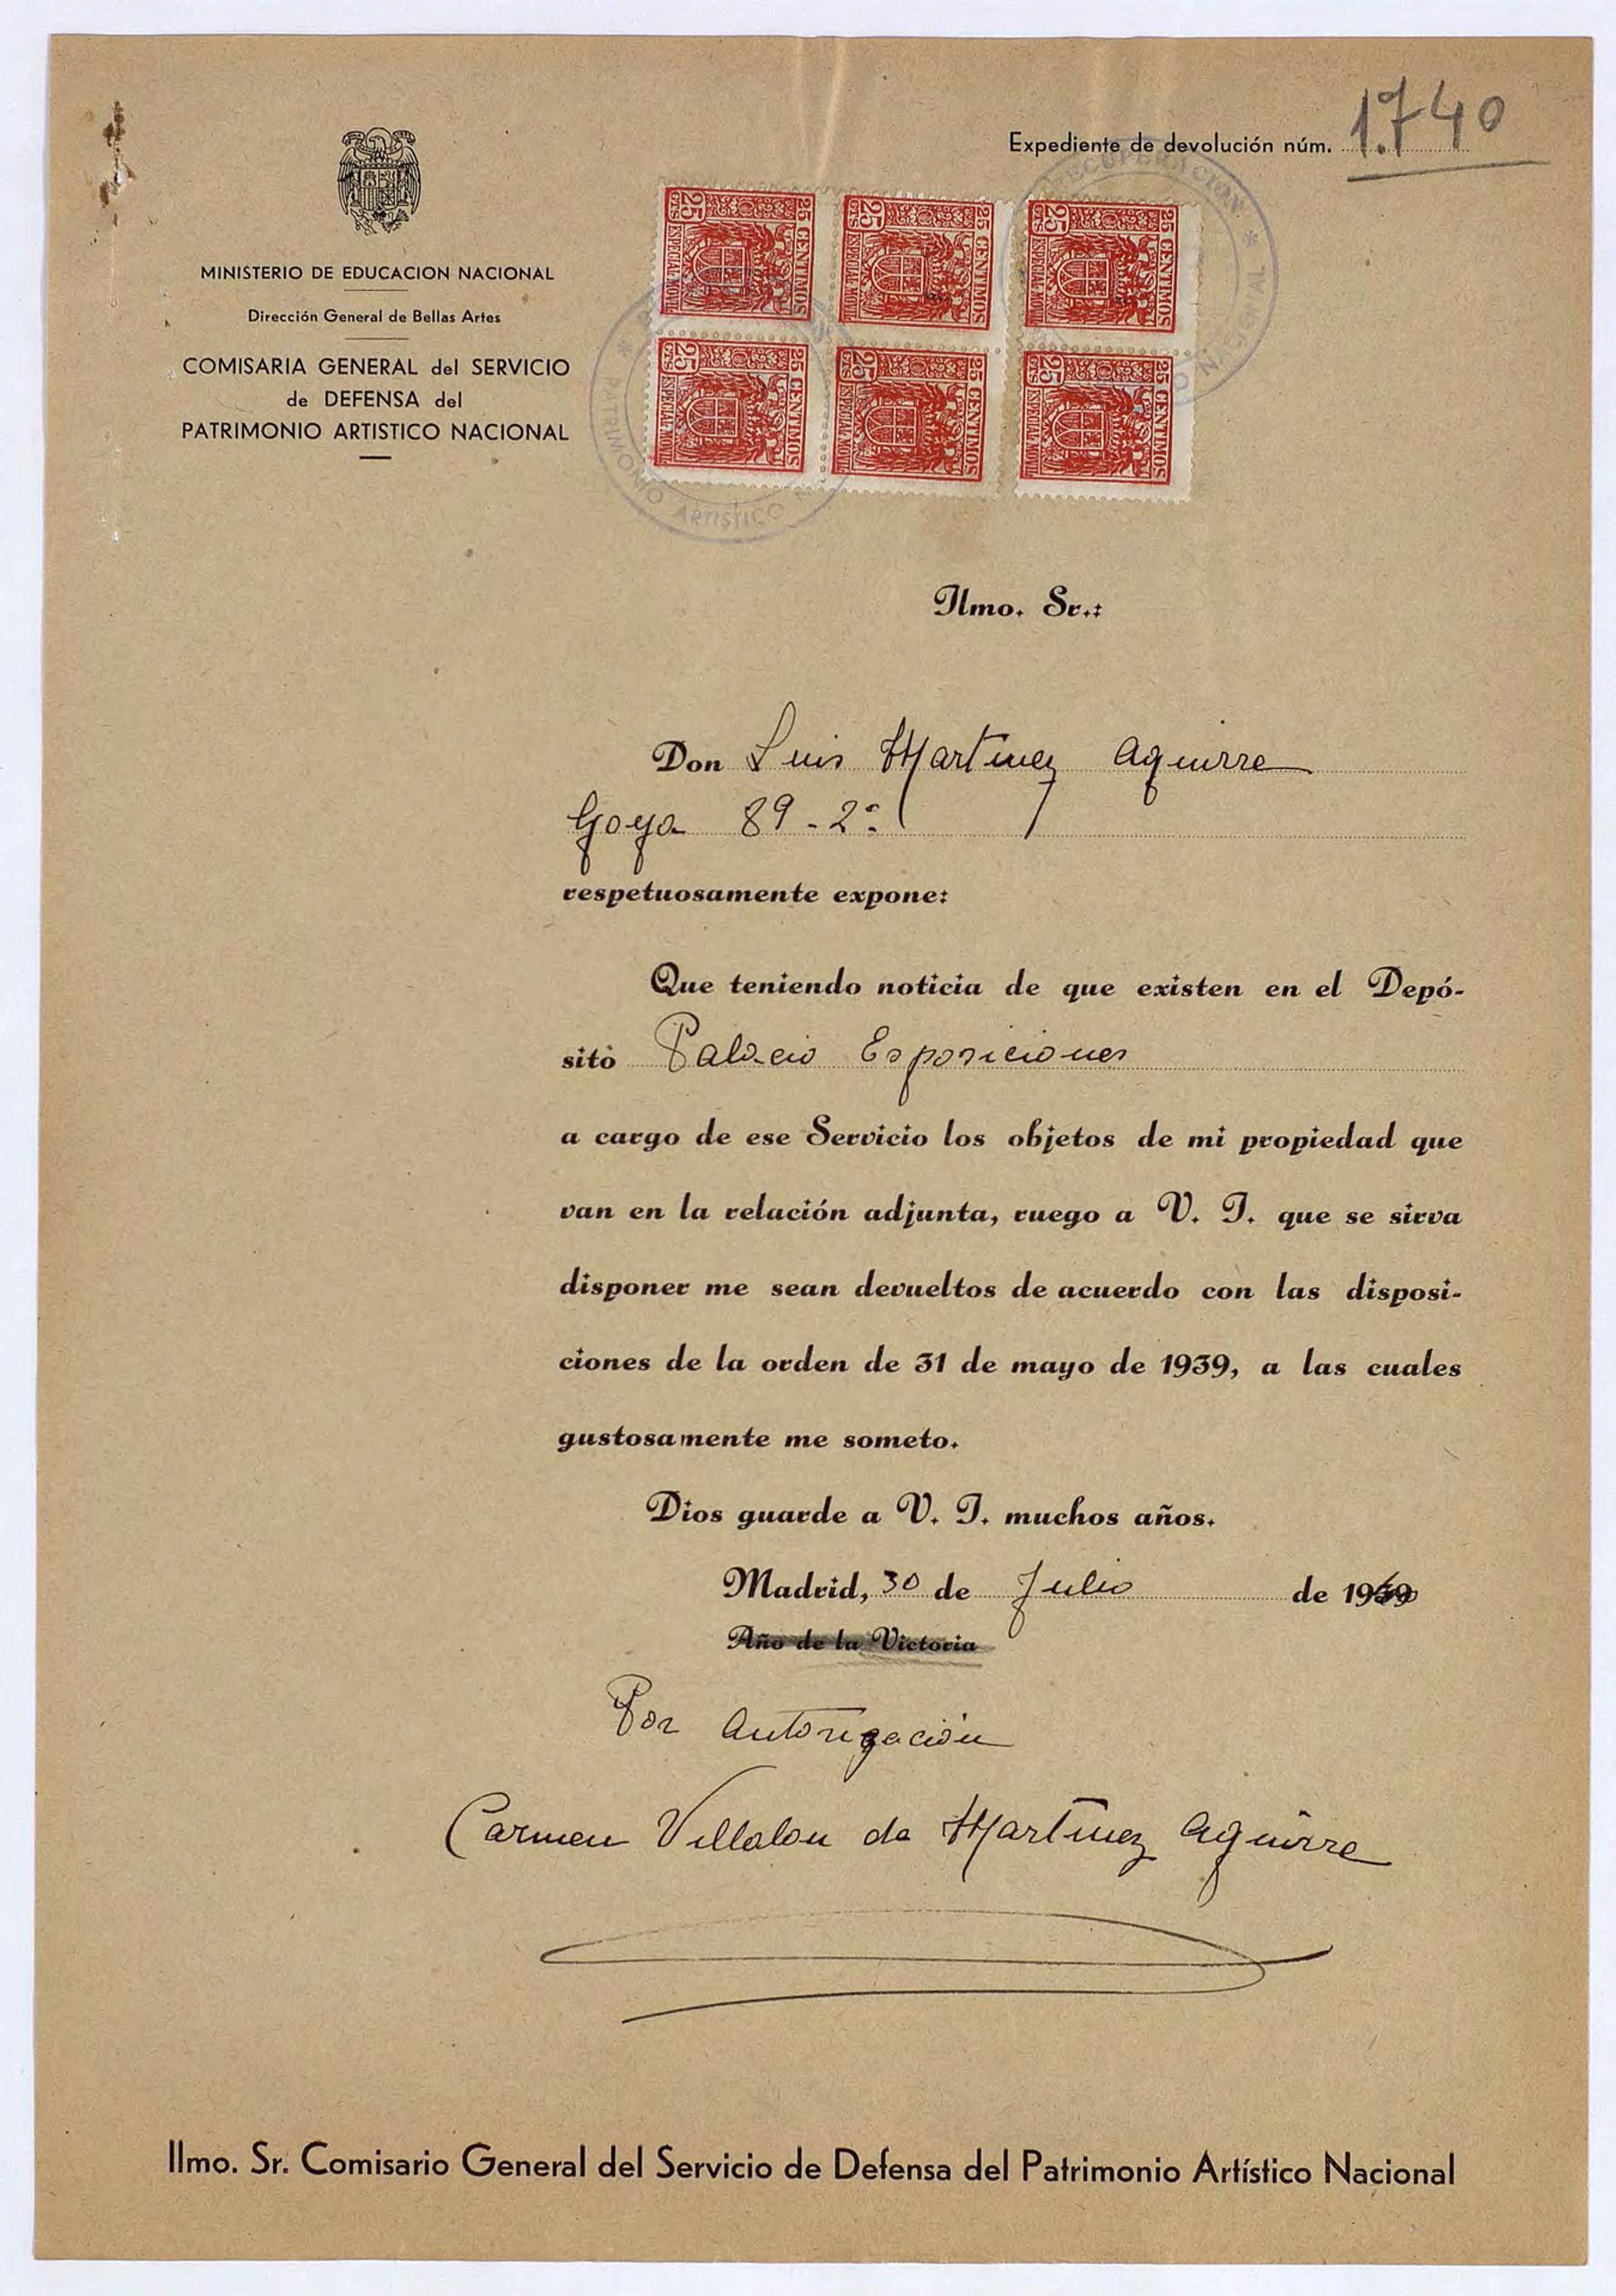 Expediente de devolución núm. 1.740
MINISTERIO DE EDUCACION NACIONAL
Dirección General de Bellas Artes
COMISARIA GENERAL del SERVICIO
de DEFENSA del
PATRIMONIO ARTISTICO NACIONAL
25 CTS 25 CENTIMOS ESPECIAL MOVIL
25 CTS 25 CENTIMOS ESPECIAL MOVIL
25 CTS 25 CENTIMOS ESPECIAL MOVIL
25 CTS 25 CENTIMOS ESPECIAL MOVIL
25 CTS 25 CENTIMOS ESPECIAL MOVIL
25 CTS 25 CENTIMOS ESPECIAL MOVIL
PATRIMONIO ARTISTICO
RECUPERACION * NACIONAL
Ilmo. Sr.:
Don Luis Martinez Aguirre
Goya 89 - 2º
respetuosamente expone:
Que teniendo noticia de que existen en el Depó-
sito Palacio Esposiciones
a cargo de ese Servicio los objetos de mi propiedad que
van en la relación adjunta, ruego a V. I. que se sirva
disponer me sean devueltos de acuerdo con las disposi-
ciones de la orden de 31 de mayo de 1939, a las cuales
gustosamente me someto.
Dios guarde a V. I. muchos años.
Madrid, 30 de Julio de 1940
Año de la Victoria
Por Autorización
Carmen Villalon de Martinez Aguirre
Ilmo. Sr. Comisario General del Servicio de Defensa del Patrimonio Artístico Nacional